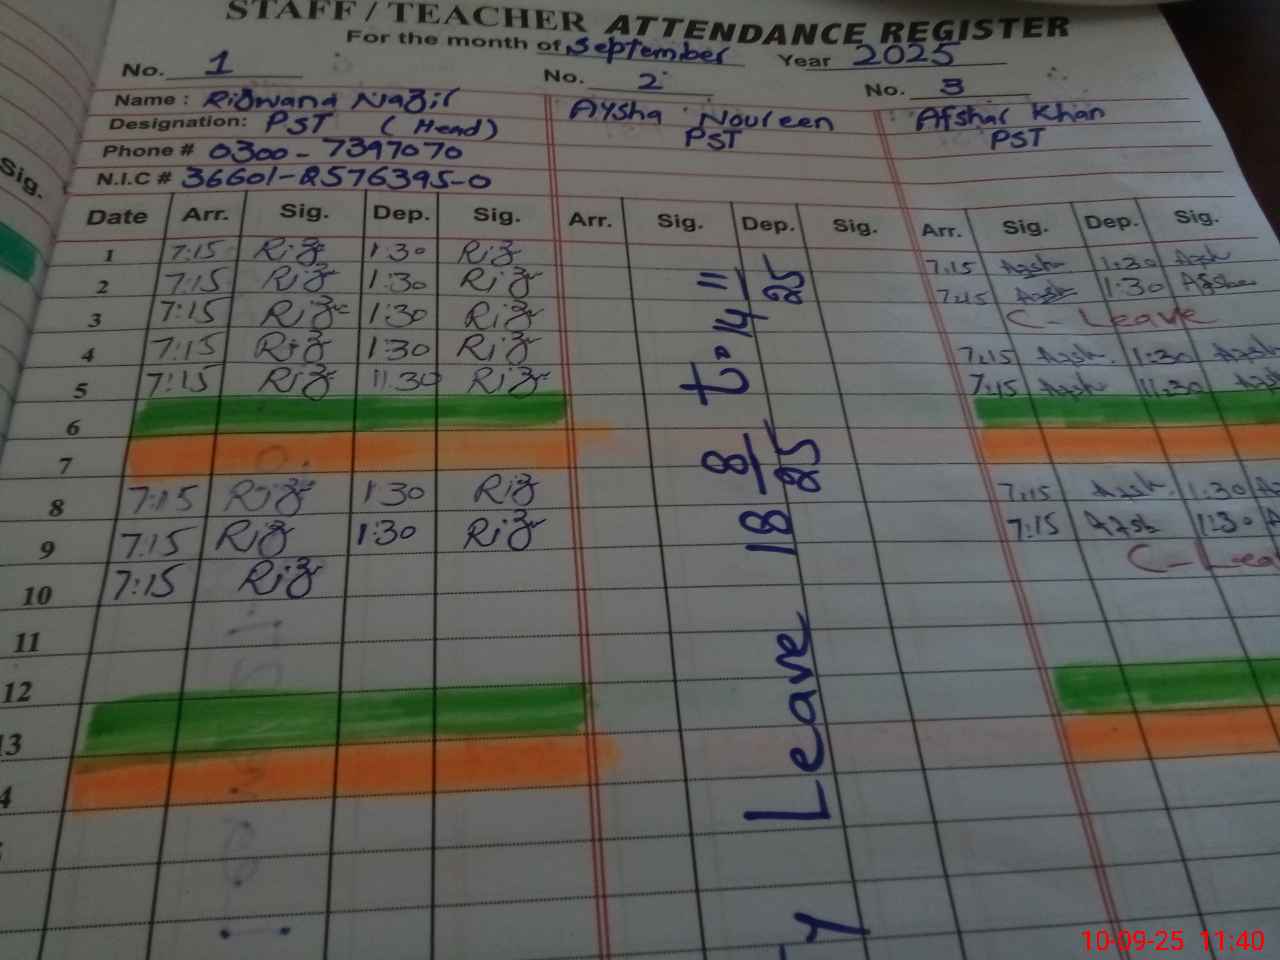 STAFF / TEACHER ATTENDANCE REGISTER
For the month of September Year 2025
No. 1 No. 2 No. 3
Name : Rizwana Nazir Aysha Noureen Afshar Khan
Designation: PST (Head) PST PST
Phone # 0300-7397070
N.I.C # 36601-8576395-0
Date Arr. Sig. Dep. Sig. Arr. Sig. Dep. Sig. Arr. Sig. Dep. Sig.
1 7:15 Riz 1:30 Riz 7:15 1:30
2 7:15 Riz 1:30 Riz 7:15 1:30
3 7:15 Riz 1:30 Riz C-Leave
4 7:15 Riz 1:30 Riz 7:15 1:30
5 7:15 Riz 11:30 Riz 7:15 11:30
6
7
8 7:15 Riz 1:30 Riz 7:15 1:30
9 7:15 Riz 1:30 Riz 7:15 1:30
10 7:15 Riz C-Lea
11
12
13
4
Leave 18 8/25 to 14 11/25
Sig.
10-09-25 11:40